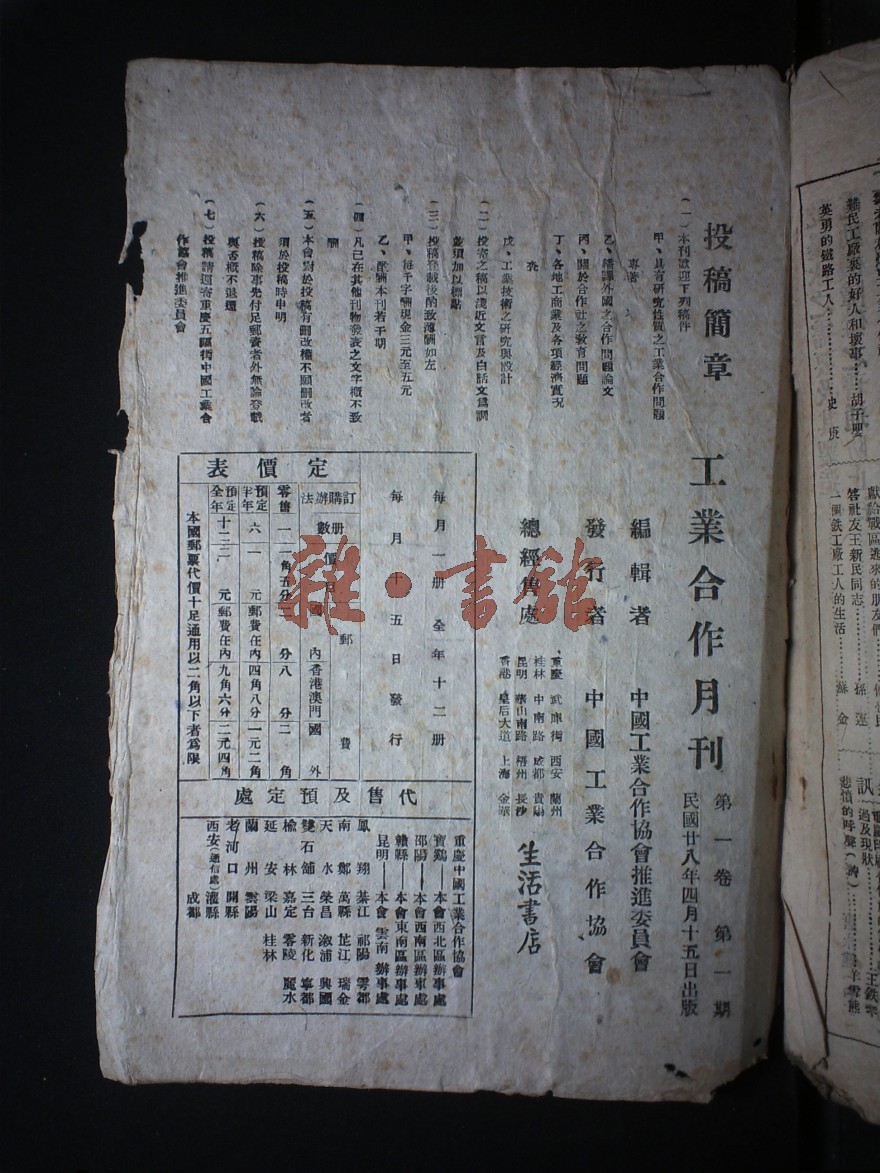 投稿簡章
(一)本刊歡迎下列稿件
甲、具有研究性質之工業合作問題
專著
乙、翻譯外國之合作問題論文
丙、關於合作社之教育問題
丁、各地工商業及各項經濟實況
戊、工業技術之研究與設計
(二)投寄之稿以淺近文言及白話文為限
並須加以標點
(三)投稿登載後酌致薄酬如左
甲、每千字酬現金三元至五元
乙、酌酬本刊若干期
(四)凡已在其他刊物發表之文字概不致
酬
(五)本會對於投稿有刪改權不願刪改者
須於投稿時申明
(六)投稿除事先付足郵費者外無論登載
與否概不退還
(七)投稿請逕寄重慶五四街中國工業合
作協會推進委員會
工業合作月刊
第一卷 第一期
民國廿八年四月十五日出版
編輯者 中國工業合作協會推進委員會
發行者 中國工業合作協會
總經售處
重慶 武庫街 西安 蘭州
桂林 中南路 成都 貴陽
昆明 華山南路 梧州 長沙
香港 皇后大道 上海 金華
生活書店
定價表
每月一册 全年十二册
每月十五日發行
訂購辦法 册數 價目 郵費
國內 香港澳門 國外
零售 一 一角五分 一分 八分 二角
預定半年 六 一元 郵費在內 四角八分 一元二角
預定全年 十二 二元 郵費在內 九角六分 二元四角
本國郵票代價十足通用以二角以下者為限
代售及預定處
重慶中國工業合作協會
寶鷄——本會西北區辦事處
邵陽——本會西南區辦事處
贛縣——本會東南區辦事處
昆明——本會雲南辦事處
鳳翔 綦江 祁陽 雩都
南鄭 萬縣 芷江 瑞金
天水 榮昌 漵浦 興國
雙石舖 三台 新化 寧都
榆林 嘉定 零陵 麗水
延安 梁山 桂林
蘭州 雲陽
老河口 開縣
西安(通信處) 灌縣
成都
雜·書館
難民工廠裏的好人和壞事……胡子嬰
英勇的鐵路工人……史庚
獻給戰區逃來的朋友們
答社友王新民同志……孫運
一個鐵工廠工人的生活……蘇金
過及現狀……王鉄
悲憤的呼聲